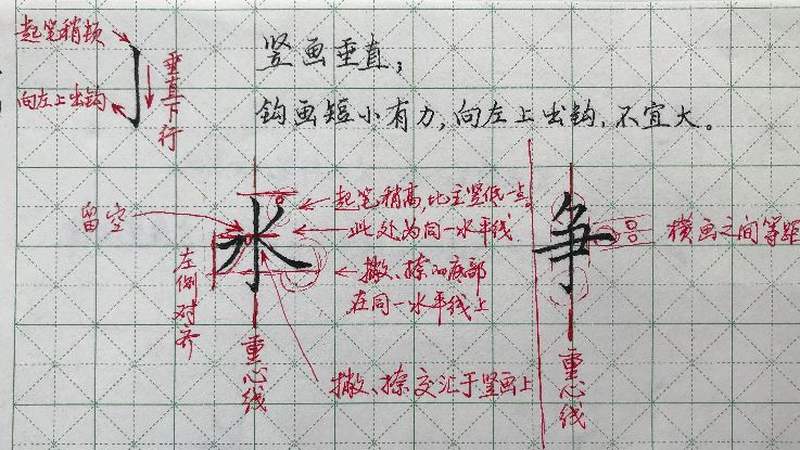 起笔稍顿
向左上出钩
垂直下行
竖画垂直;
钩画短小有力,向左上出钩,不宜大。
留空
左侧对齐
水
起笔稍高,比主竖低一点。
此处为同一水平线
撇、捺的底部
在同一水平线上
撇、捺交汇于竖画上
重心线
争
横画之间等距
重心线